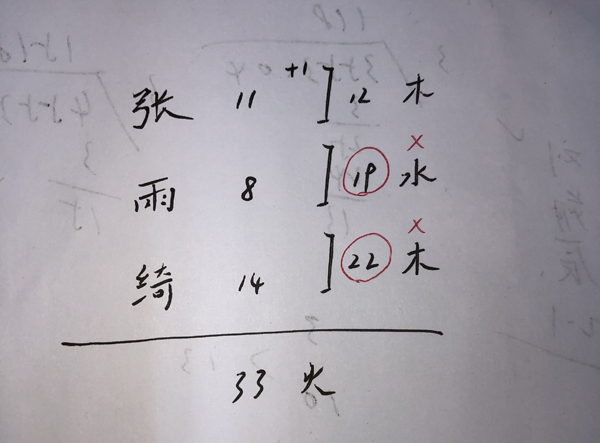 张 11 +1 ] 12 木
雨 8 ] 19 水 ×
绮 14 ] 22 木 ×
33 火